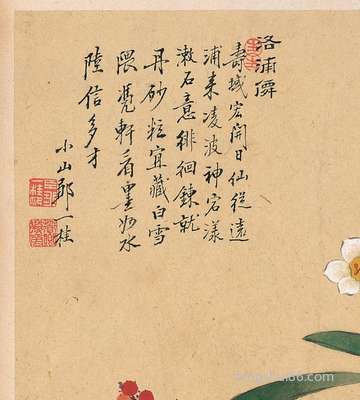 洛浦僊
壽域宏開日仙從遠
浦來凌波神宕漾
漱石意徘徊鍊就
丹砂粒宜藏白雪
隈凭軒看墨如水
陸信多才
小山鄒一桂